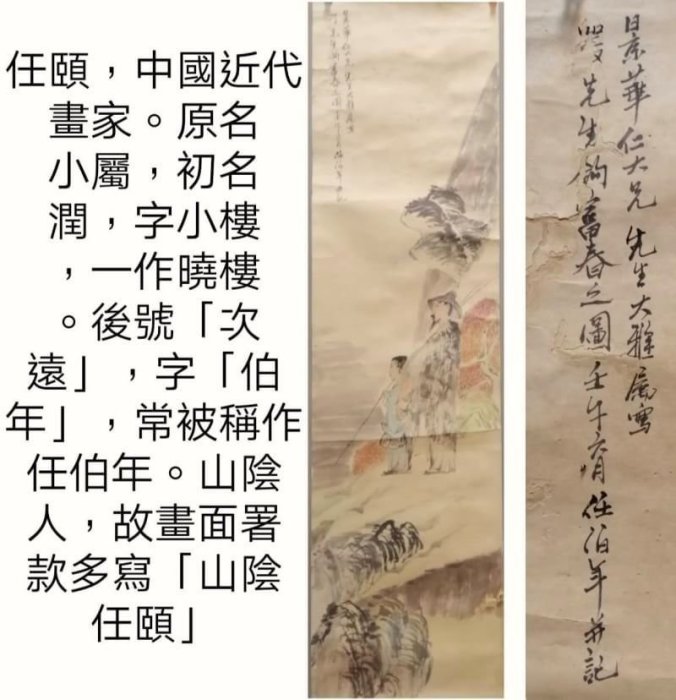 任頤，中國近代
畫家。原名
小屬，初名
潤，字小樓
，一作曉樓
。後號「次
遠」，字「伯
年」，常被稱作
任伯年。山陰
人，故畫面署
款多寫「山陰
任頤」
景華仁大兄先生大雅屬寫
先生釣富春之圖壬午任伯年并記